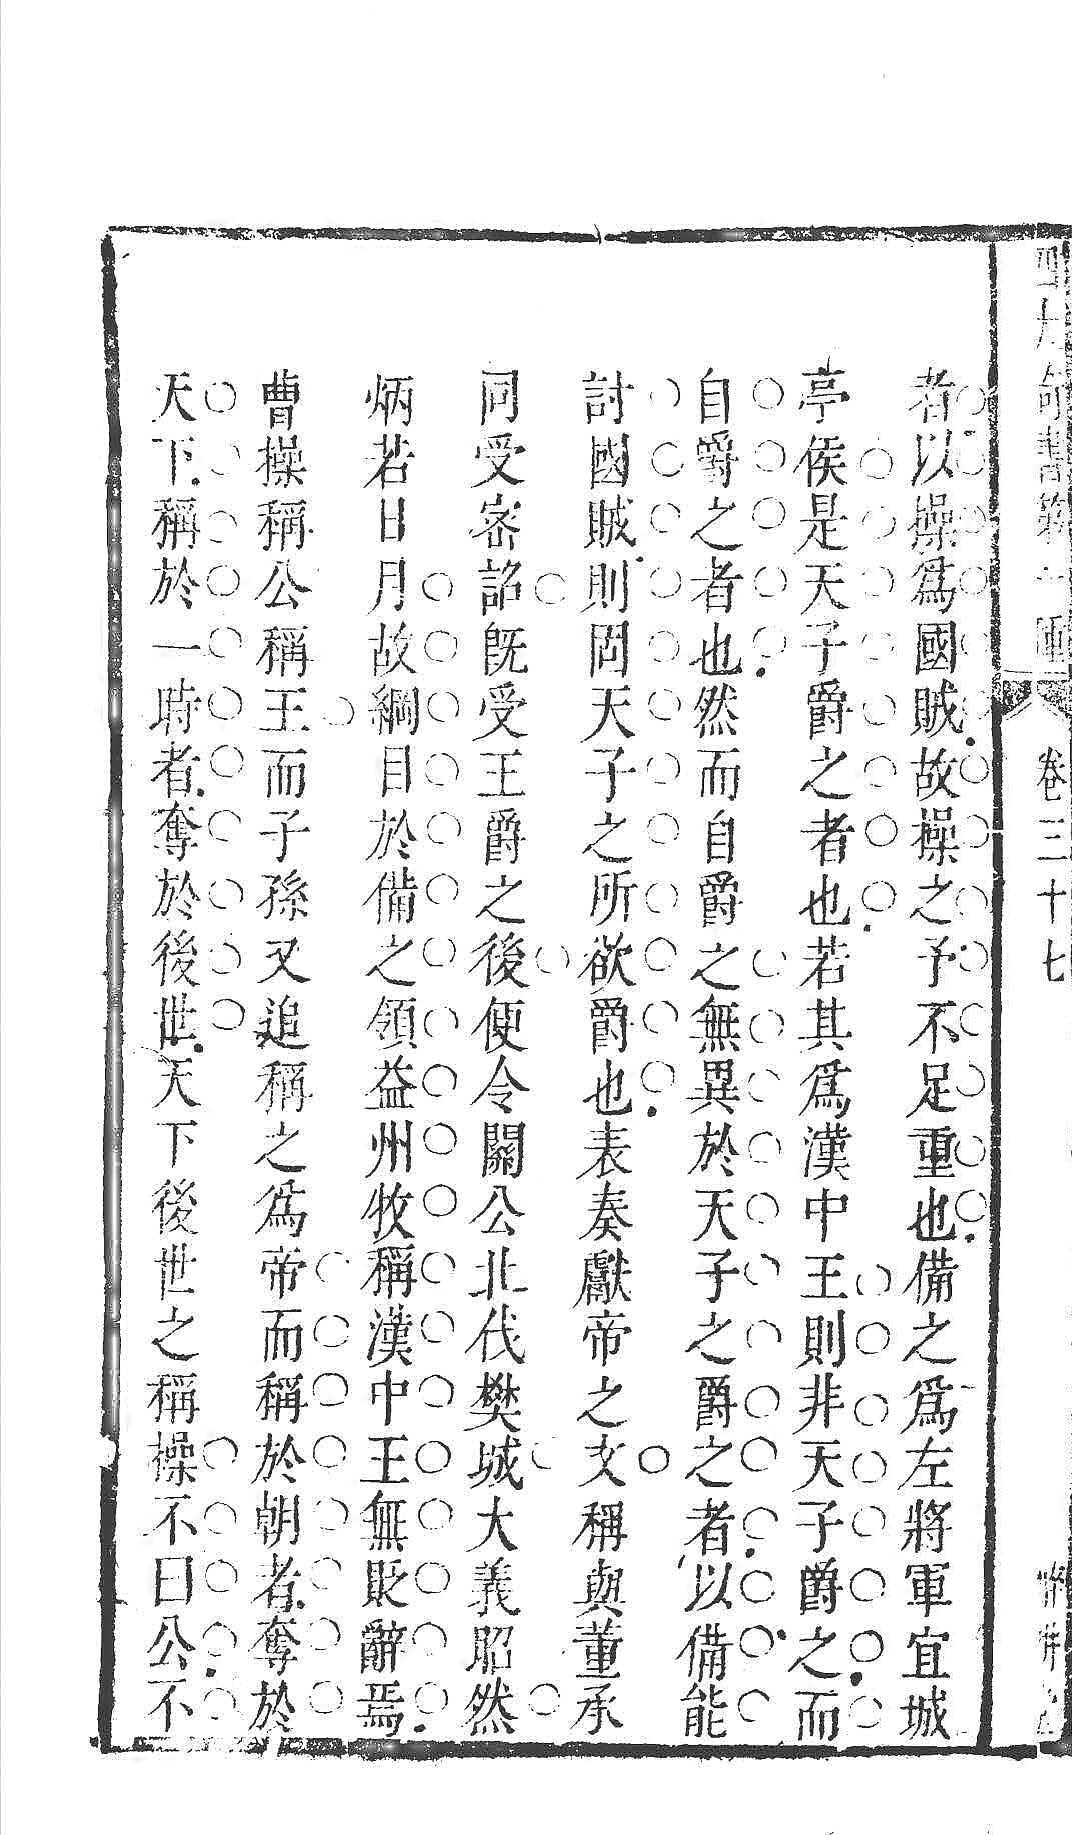 四大奇書第一種
卷三十七
者以操爲國賊故操之予不足重也備之爲左將軍宜城
亭侯是天子爵之者也若其爲漢中王則非天子爵之而
自爵之者也然而自爵之無異於天子之爵之者以備能
討國賊則固天子之所欲爵也表奏獻帝之文稱與董承
同受密詔既受王爵之後便令關公北伐樊城大義昭然
炳若日月故綱目於備之領益州牧稱漢中王無貶辭焉
曹操稱公稱王而子孫又追稱之爲帝而稱於朝者奪於
天下稱於一時者奪於後世天下後世之稱操不曰公不